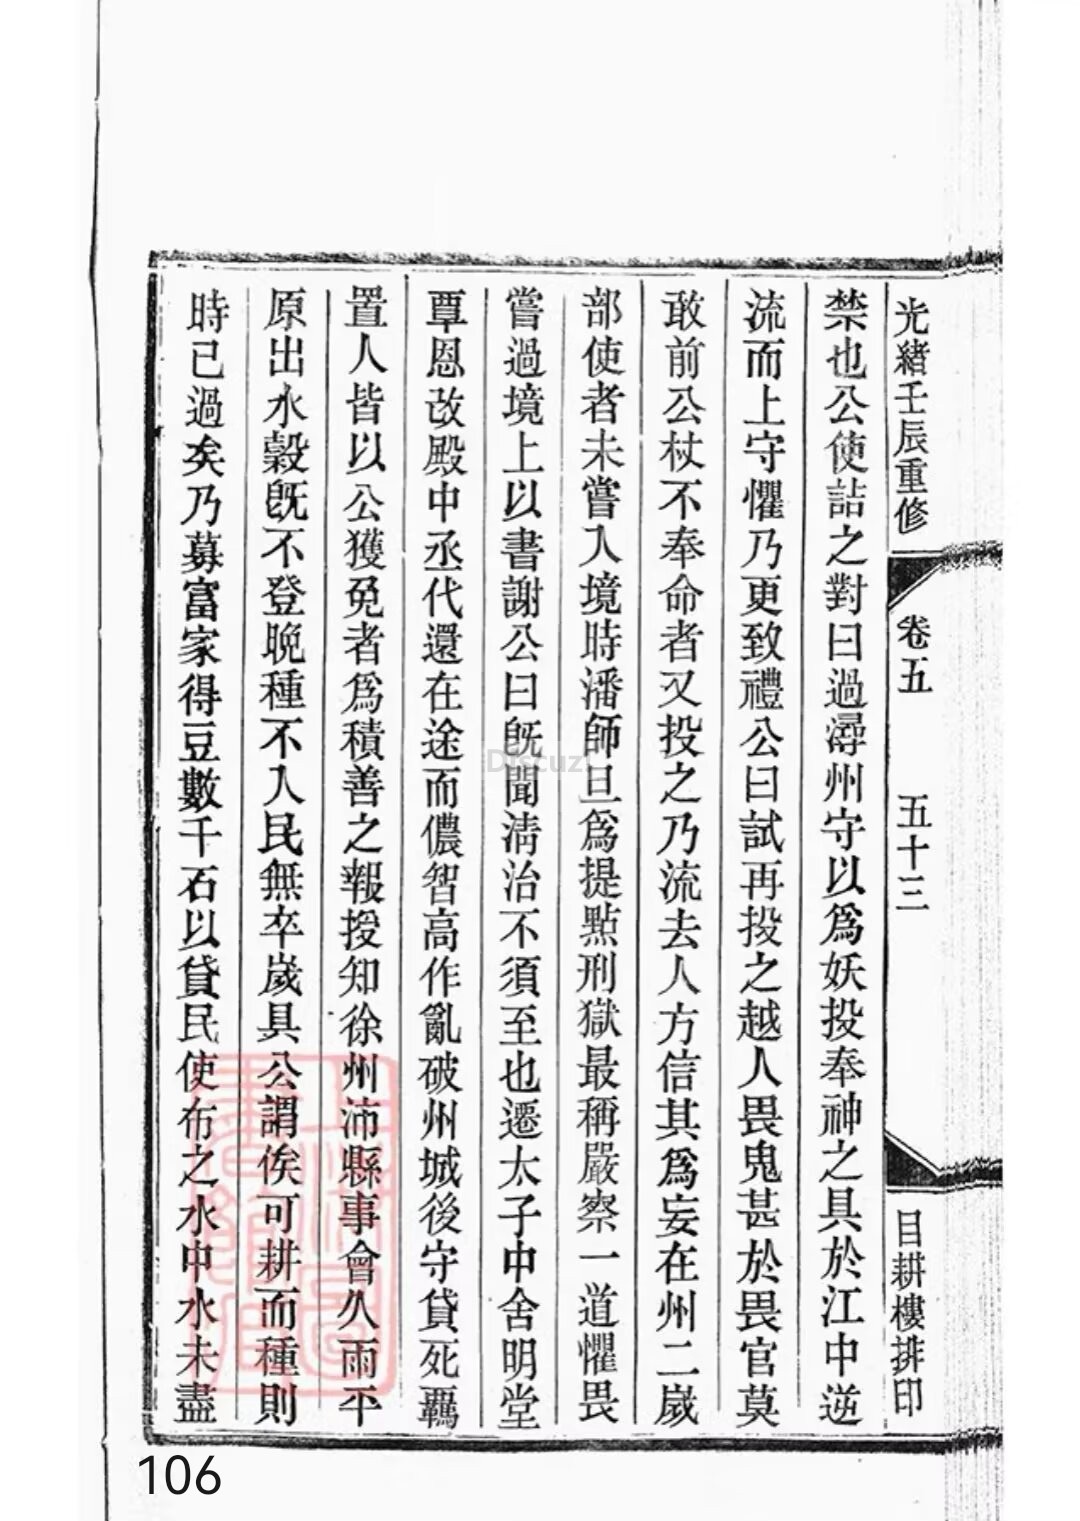 光緒壬辰重修　卷五　五十三　目耕樓排印
禁也公使詰之對曰過潯州守以爲妖投奉神之具於江中逆
流而上守懼乃更致禮公曰試再投之越人畏鬼甚於畏官莫
敢前公杖不奉命者又投之乃流去人方信其爲妄在州二歲
部使者未嘗入境時潘師旦爲提點刑獄最稱嚴察一道懼畏
嘗過境上以書謝公曰旣聞淸治不須至也遷太子中舍明堂
覃恩改殿中丞代還在途而儂智高作亂破州城後守貸死羈
置人皆以公獲免者爲積善之報授知徐州沛縣事會久雨平
原出水穀旣不登晚種不入民無卒歲具公謂俟可耕而種則
時已過矣乃募富家得豆數千石以貸民使布之水中水未盡
Discuz!
106